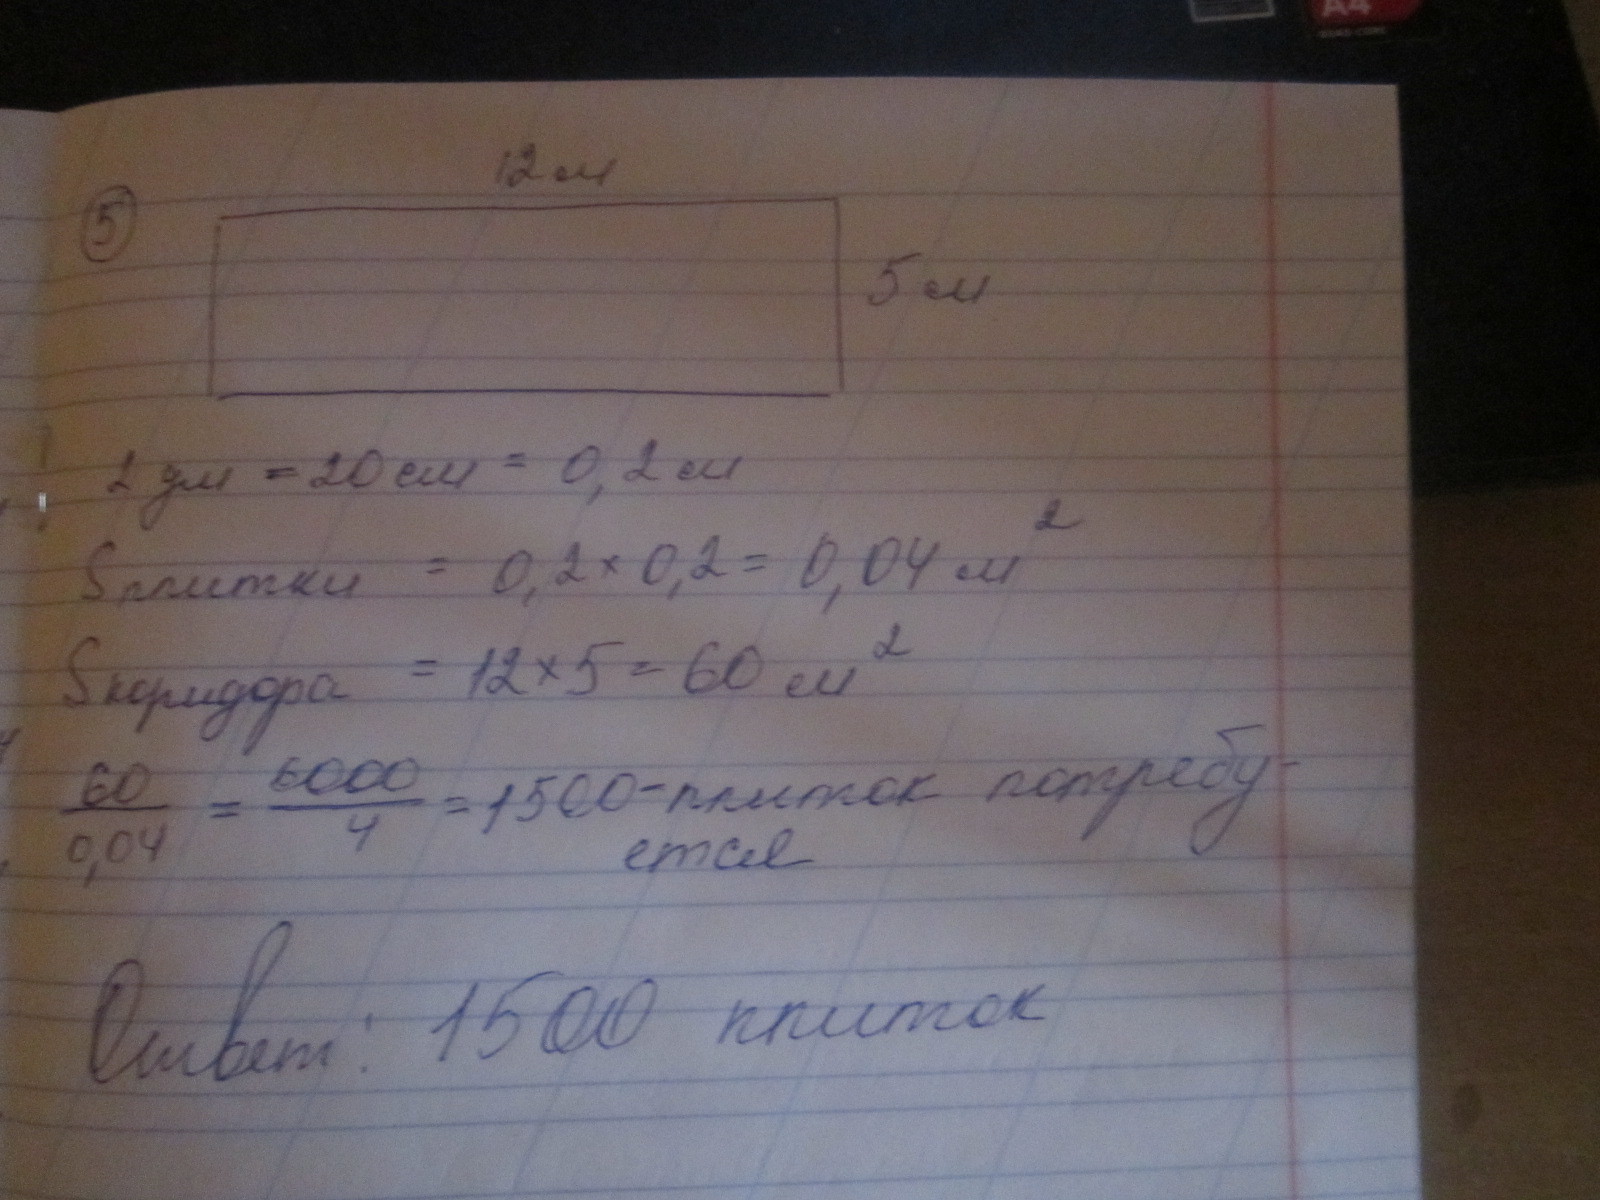 A4
12 м
5
5 м
2 дм = 20 см = 0,2 м
Sплитки = 0,2 × 0,2 = 0,04 м²
Sкоридора = 12 × 5 = 60 м²
60/0,04 = 6000/4 = 1500 - плиток потребу-
ется
Ответ: 1500 плиток